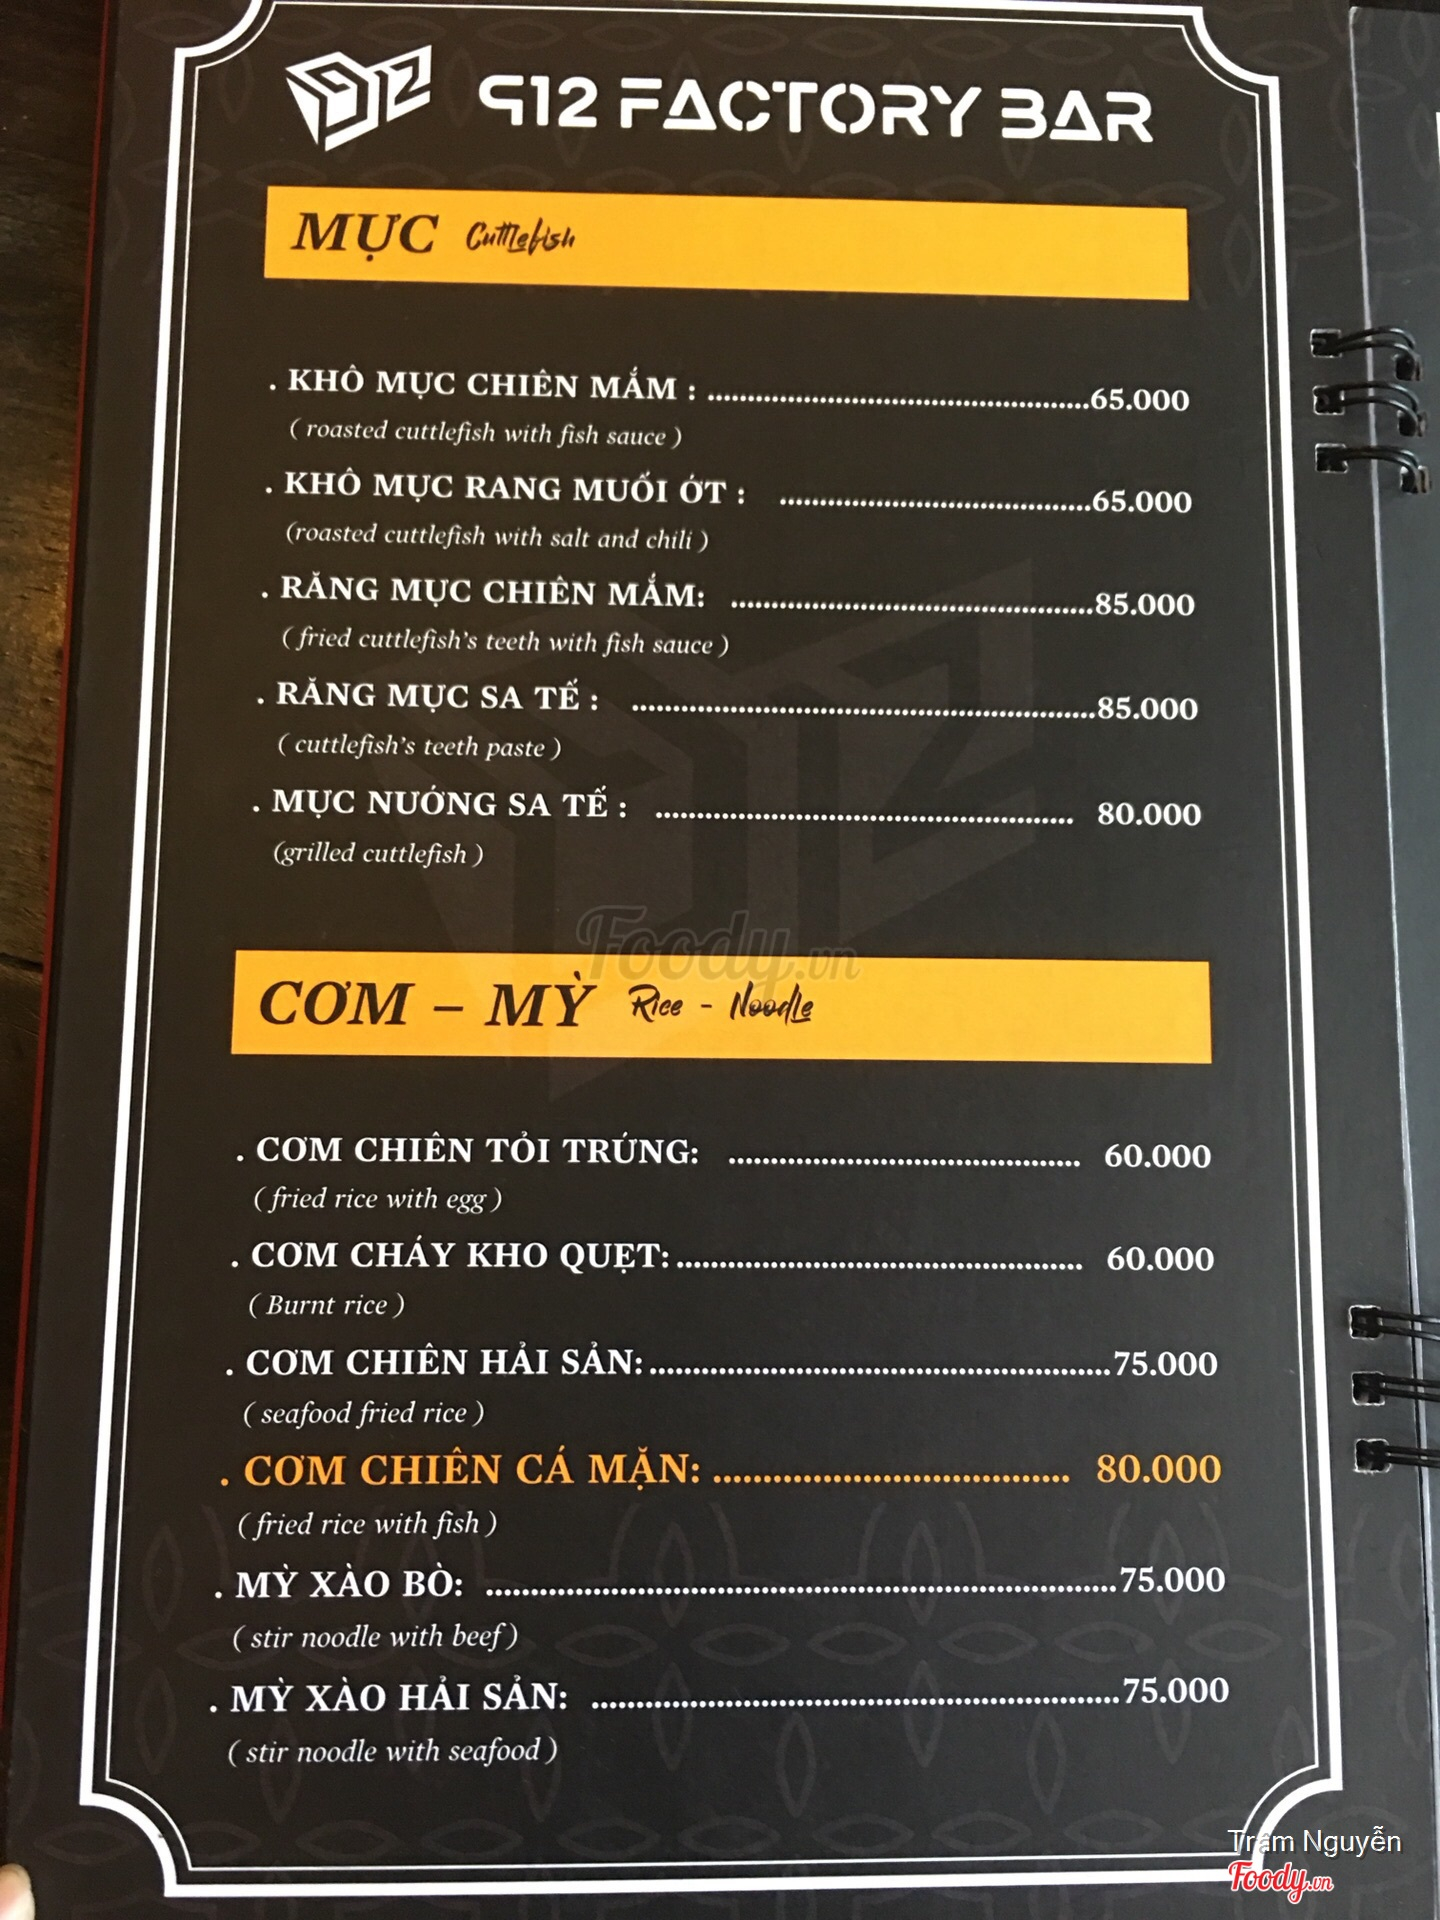 912
912 FACTORY BAR
MỰC Cuttlefish
. KHÔ MỰC CHIÊN MẮM : ................................................65.000
( roasted cuttlefish with fish sauce )
. KHÔ MỰC RANG MUỐI ỚT : .......................................65.000
(roasted cuttlefish with salt and chili )
. RĂNG MỰC CHIÊN MẮM: .............................................85.000
( fried cuttlefish's teeth with fish sauce )
. RĂNG MỰC SA TẾ : ..........................................................85.000
( cuttlefish's teeth paste )
. MỰC NƯỚNG SA TẾ : .................................................... 80.000
(grilled cuttlefish )
Foody.vn
CƠM – MỲ Rice - Noodle
. CƠM CHIÊN TỎI TRỨNG: ............................................ 60.000
( fried rice with egg )
. CƠM CHÁY KHO QUẸT:.................................................. 60.000
( Burnt rice )
. CƠM CHIÊN HẢI SẢN:.........................................................75.000
( seafood fried rice )
. CƠM CHIÊN CÁ MẶN: ....................................... 80.000
( fried rice with fish )
. MỲ XÀO BÒ: .....................................................................75.000
( stir noodle with beef )
. MỲ XÀO HẢI SẢN: ..........................................................75.000
( stir noodle with seafood )
Trâm Nguyễn
Foody.vn